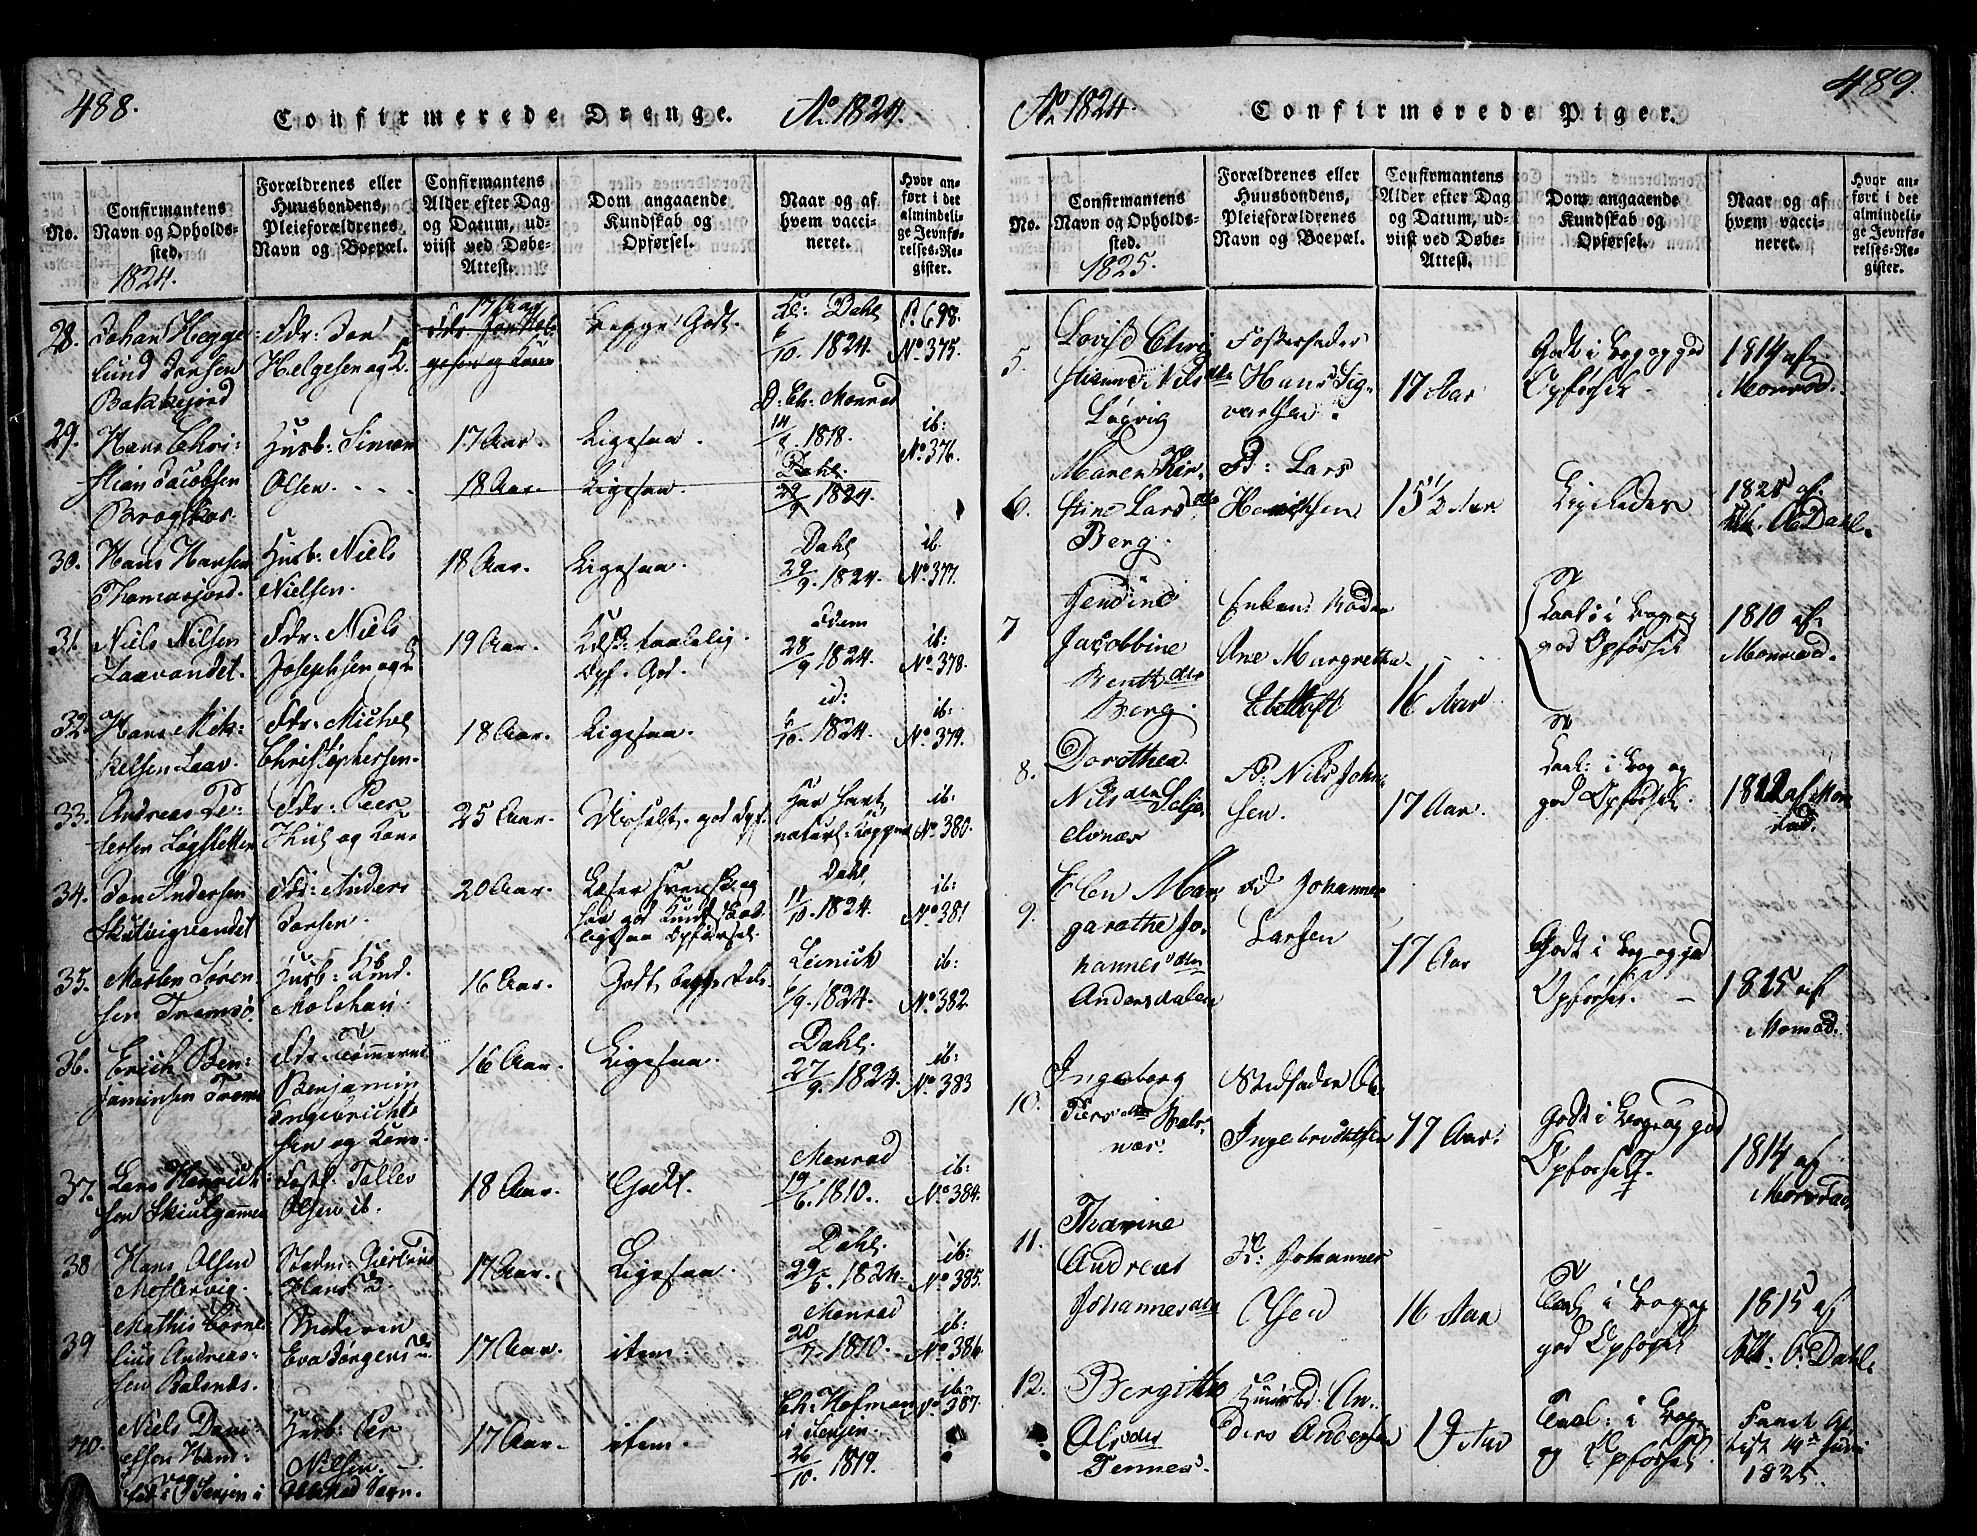 488.
Confirmerede Drenge.
Ao. 1824.
No.
Confirmantens Navn og Opholds-sted.
1824.
Forældrenes eller Huusbondens, Pleieforældrenes Navn og Boepæl.
Confirmantens Alder efter Dag og Datum, ud-viist ved Døbe-Attest.
Dom angaaende Kundskab og Opførsel.
Naar og af hvem vacci-neret.
Hvor an-ført i det almindeli-ge Jevnfø-relses-Re-gister.
28.
Johan Hegge-
lund Jonsen
Bakkejord
Fdr: Jon
Helgesen og K.
17 Aar
Kl: Dahl
6/10. 1824.
P. 698.
No. 375.
29.
Hans Chri-
stian Jacobsen
Husb: Simon
Olsen
17 Aar.
Ligesaa.
D. Ch: Monrad
1818.
ib:
No. 376.
18 Aar.
Ligesaa.
Dahl.
29/9 1824.
30.
Hans Hansen
Thomasjord.
Husb: Niels
Nielsen.
18 Aar.
Ligesaa.
Dahl
29/9. 1824.
ib.
No. 377.
31.
Niels Nilsen
Laavandet.
Fdr: Niels
Josephsen og K
19 Aar.
Kdsk: taalelig.
Opf. God.
idem
28/9 1824.
ib:
No. 378.
32.
Hans Mik-
kelsen Laav.
Fdr: Michel
Christophersen.
18 Aar.
Ligesaa.
id:
6/10. 1824.
ib:
No. 379.
33.
Andreas Pe-
tersen Løgsletten
Fdr: Peer
og Kone
25 Aar.
god Opf.
Har havt
naturl. Kopper
ib:
No. 380.
34.
Jon Andersen
Fdr: Anders
Jonsen.
20 Aar.
Dahl
11/10. 1824.
ib:
No. 381
35.
Morten Søren-
sen Tromsø.
Husb:
16 Aar.
Godt begge Dele.
1824.
ib:
No. 382
36.
Erich Ben-
jaminsen Tromsø
Fdr:
Benjamin
Ingebricht-
sen og Kone.
16 Aar.
Ligesaa.
Dahl.
27/9. 1824.
ib:
No. 383
37.
Lars Henrich-
sen Skiulgammen
Tollev
Olsen ib.
18 Aar.
Godt.
Monrad
19/6. 1810.
ib:
No. 384.
38
Hans Olsen
Mestervig.
Hans D.
17 Aar.
Ligesaa.
Dahl.
1824.
ib:
No. 385.
39
Mathis Corne-
lius Andreas-
sen Balsnes.
Moderen
Eva Jørgens D.
17 Aar.
item.
Monrad
20/7. 1810.
ib:
No. 386.
40.
Niels Dani-
elsen
Husb: Per
Nilsen
17 Aar.
item.
Ch: Hofman
i Senjen.
26/10. 1819.
ib:
No. 387.
489.
Ao. 1824.
Confirmerede Piger.
No.
Confirmantens Navn og Opholds-sted.
1825.
Forældrenes eller Huusbondens, Pleieforældrenes Navn og Boepæl.
Confirmantens Alder efter Dag og Datum, ud-viist ved Døbe-Attest.
Dom angaaende Kundskab og Opførsel.
Naar og af hvem vacci-neret.
Hvor an-ført i det almindeli-ge Jevnfø-relses-Re-gister.
5.
Lovise Chri-
Nilsdtr
Løgvig
Fosterfader
Hans Sig-
vartsen.
17 Aar
Godt i Bog og god
Opførsel
1814 af
Monrad.
6.
Maren Kir-
stine Larsdtr
Berg.
F: Lars
Henrichsen
15 1/2 Aar
Ligeledes
1825 af
Dahl.
7
Jendine
Jacobbine
Berg.
Enken: Moder
Ane Margretha
Ebeltoft
16 Aar
Taal: i Bog og
god Opførsel
1810 af
Monrad.
8.
Dorothea
Nilsdtr Selje-
elvnæs
F: Nils John-
sen.
17 Aar.
Taal: i Bog og
god Opførsel.
1812 af Mon-
rad.
9.
Elen Mar-
garathe Jo-
hannesdtr
Andersdalen
Fd Johannes
Larsen
17 Aar
Godt i Bog og god
Opførsel.
1815 af
Monrad.
10.
Ingeborg
Persdtr Bals-
næs.
Stedfader
Ingebrichtsen
17 Aar.
Godt i Bog og god
Opførsel.
1814 af
Monrad
11.
Tharine
Andrea
Johannesdtr
F: Johannes
Olsen
16 Aar
Taal i Bog og
god Opførsel
1815 af
Kl: O. Dahl
12.
Bergitte
Olsdtr
Tennes.
Huusbd: An-
ders Andersen
19 Aar
Taal: i Bog
og Opførsel.
1825.